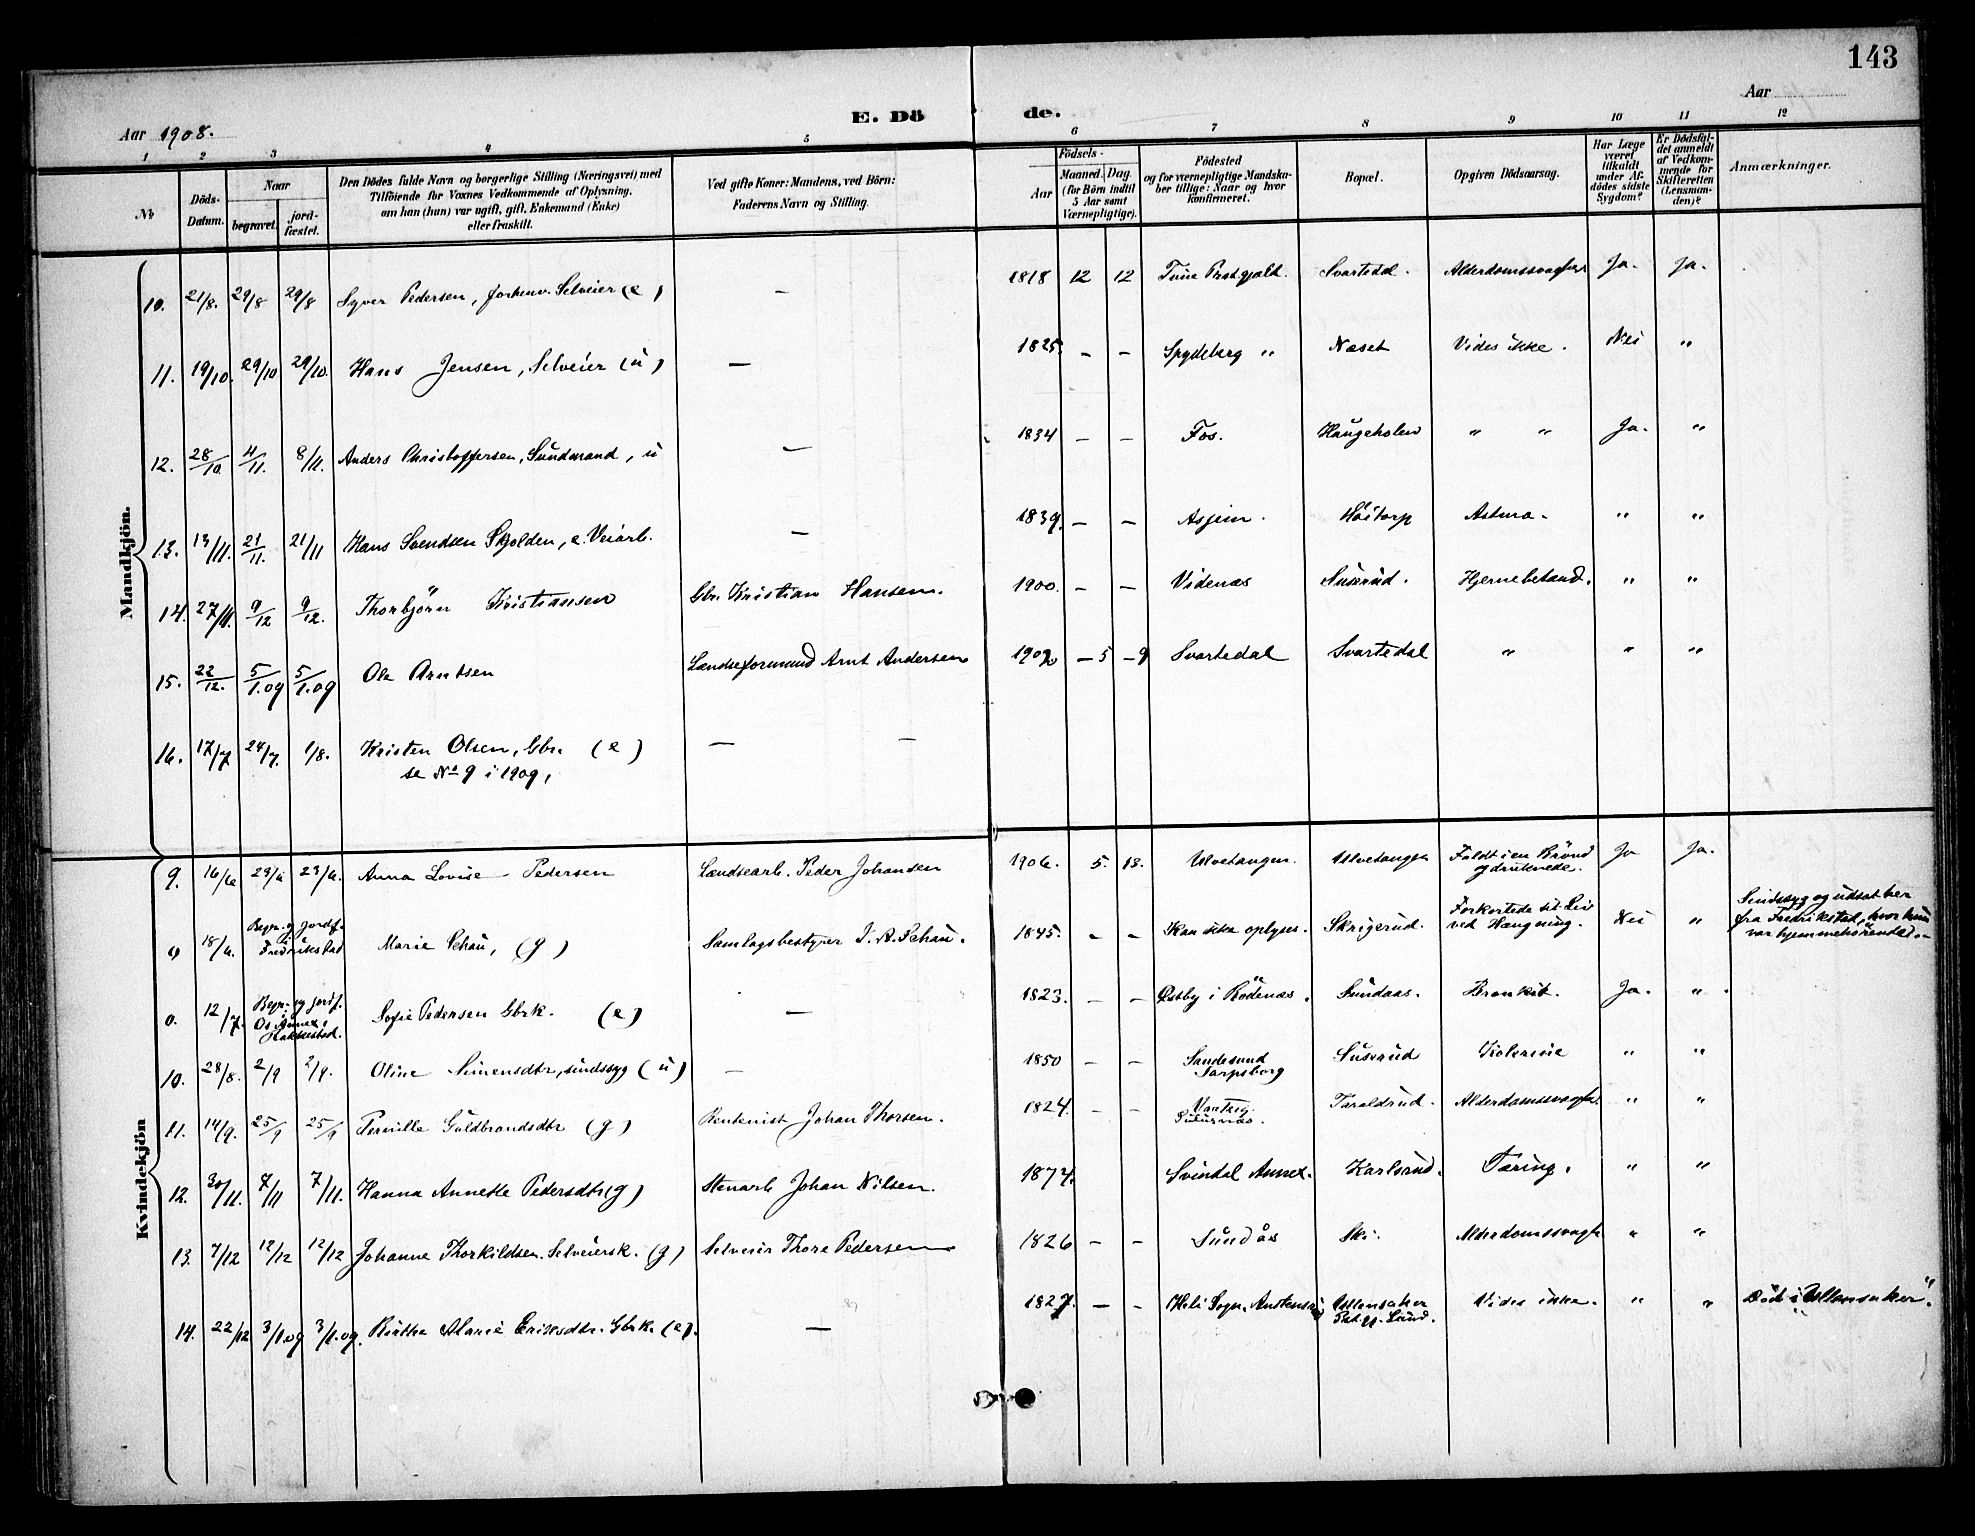 143
Aar 1908.
E. Dö de.
Aar
1 2 3 4 5 6 7 8 9 10 11 12
No
Döds-
Datum.
Naar
begravet.
jord-
fæstet.
Den Dödes fulde Navn og borgerlige Stilling (Næringsvei) med
Tilföiende for Voxnes Vedkommende af Oplysning,
om han (hun) var ugift, gift, Enkemand (Enke)
eller fraskilt.
Ved gifte Koner: Mandens, ved Börn:
Faderens Navn og Stilling.
Födsels-
Aar
Maaned. Dag.
(for Börn indtil
5 Aar samt
Værnepligtige).
Födested
og for værnepligtige Mandska-
ber tillige: Naar og hvor
konfirmeret.
Bopæl.
Opgiven Dödsaarsag.
Har Læge
været
tilkaldt
under Af-
dödes sidste
Sygdom?
Er Dödsfal-
det anmeldt
af Vedkom-
mende for
Skifteretten
(Lensman-
den)?
Anmærkninger.
Mandkjön.
10. 21/8. 29/8 29/8 Syver Pedersen, forhenv. Selveier (e) — 1818 12 12 Tune Prestgjæld. Svartedal. Alderdomssvaghed Ja. Ja.
11. 19/10. 29/10 29/10. Hans Jensen, Selveier (u) — 1825. — — Spydeberg " Næset Vides ikke. Nei "
12. 28/10. 4/11. 8/11. Anders Christoffersen, Sundmand, u — 1834 — — Fos. Haugeholen " " Ja. "
13. 13/11. 21/11. 21/11 Hans Svendsen Skjolden, e. Veiarb. — 1839. — — Asjeim. Höitorp Astma. " "
14. 27/11. 9/12 9/12. Thorbjörn Kristiansen Gbr. Kristian Hansen. 1900. — — Videnæs Suserud. Hjernebetænd. " "
15. 22/12. 5/1.09 5/1.09 Ole Arntsen Lændseformand Arnt Andersen — 5 — 9 Svartedal Svartedal " " "
16. 17/7 24/7. 1/8. Kristen Olsen, Gbr. (e) — —
se No 9 i 1909,
Kvindekjön
9. 16/6 23/6 23/6. Anna Lovise Pedersen Lændsearb. Peder Johansen 1906. 5. 18. Ulvetangen. Ulvetangen Faldt i en Brönd
og druknede. Ja Ja.
0 18/6. Begr. og jordf.
Fredrikstad Marie Schau, (g) Samlagsbestyrer J. A. Schau. 1845. — — Kan ikke oplyses. Skrigerud. Forkortede sit Liv
ved Hængning. Nei " Sindssyg og udsat her
fra Fredrikstad, hvor hun
var hjemmehörende. —
0. 12/7. Begr. og jordf.
Os Annex i
Rakkestad. Sofie Pedersen Gbrk. (e) — 1823. — — Østby i Rödenæs. Sundaas. Bronkit. Ja. ".
10. 28/8. 2/9 2/9. Oline Simensdtr, sindssyg (u) — 1850 — — Sandesund
Sarpsborg Suserud Kolerine " "
11. 14/9. 25/9 25/9 Pernille Guldbrandsdtr (g) Rentenist Johan Thorsen. 1824. — — Taraldrud. Alderdomssvagh. " "
12. 30/11. 7/11 7/11. Hanna Annette Pedersdtr (g) Stenarb Johan Nilsen. Svindal Annex. Karlsrud. Tæring. " "
13. 7/12 12/12 12/12 Johanne Thorkildsen. Selveiersk. (g) Selveier Thore Pedersen 1826 — — Sundås Ski. Alderdomssvagh " "
14. 22/12 3/1.09 3/1.09. Marie Eriksdtr. Gbrk. (e). — 1827. — — Heli Sogn. Ullensaker
Pgj. Vides ikke. " " Död i "Ullensaker".